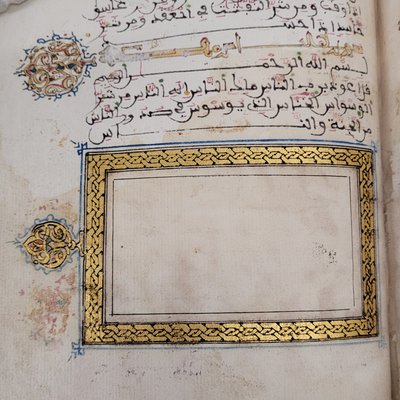 غاسق
اذا وقب ومن شر النفثت في العقد ومن شر
حاسد اذا حسد
بسم الله الرحمن الرحيم
قل اعوذ برب الناس ملك الناس اله الناس من شر
الوسواس الخناس الذي يوسوس في صدور الناس
من الجنة والناس